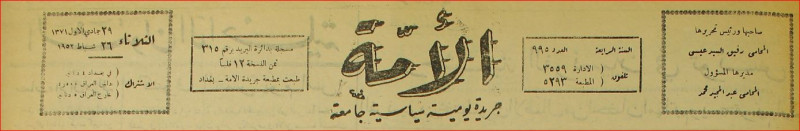 صاحبها ورئيس تحريرها
المحامي رفيق السيد عيسى
مديرها المسؤول
المحامي عبد المجيد محمد
السنة الرابعة العدد ٩٩٥
تلفون
الادارة ٣٥٥٩
المطبعة ٥٢٩٣
الأمة
جريدة يومية سياسية جامعة
مسجلة بدائرة البريد برقم ٣١٥
ثمن النسخة ١٢ فلساً
طبعت بمطبعة جريدة الامة - بغداد
الثلاثاء
٢٩ جمادي الاول ١٣٧١
٢٦ شباط ١٩٥٢
الاشتراك
في بغداد
داخل العراق
خارج العراق